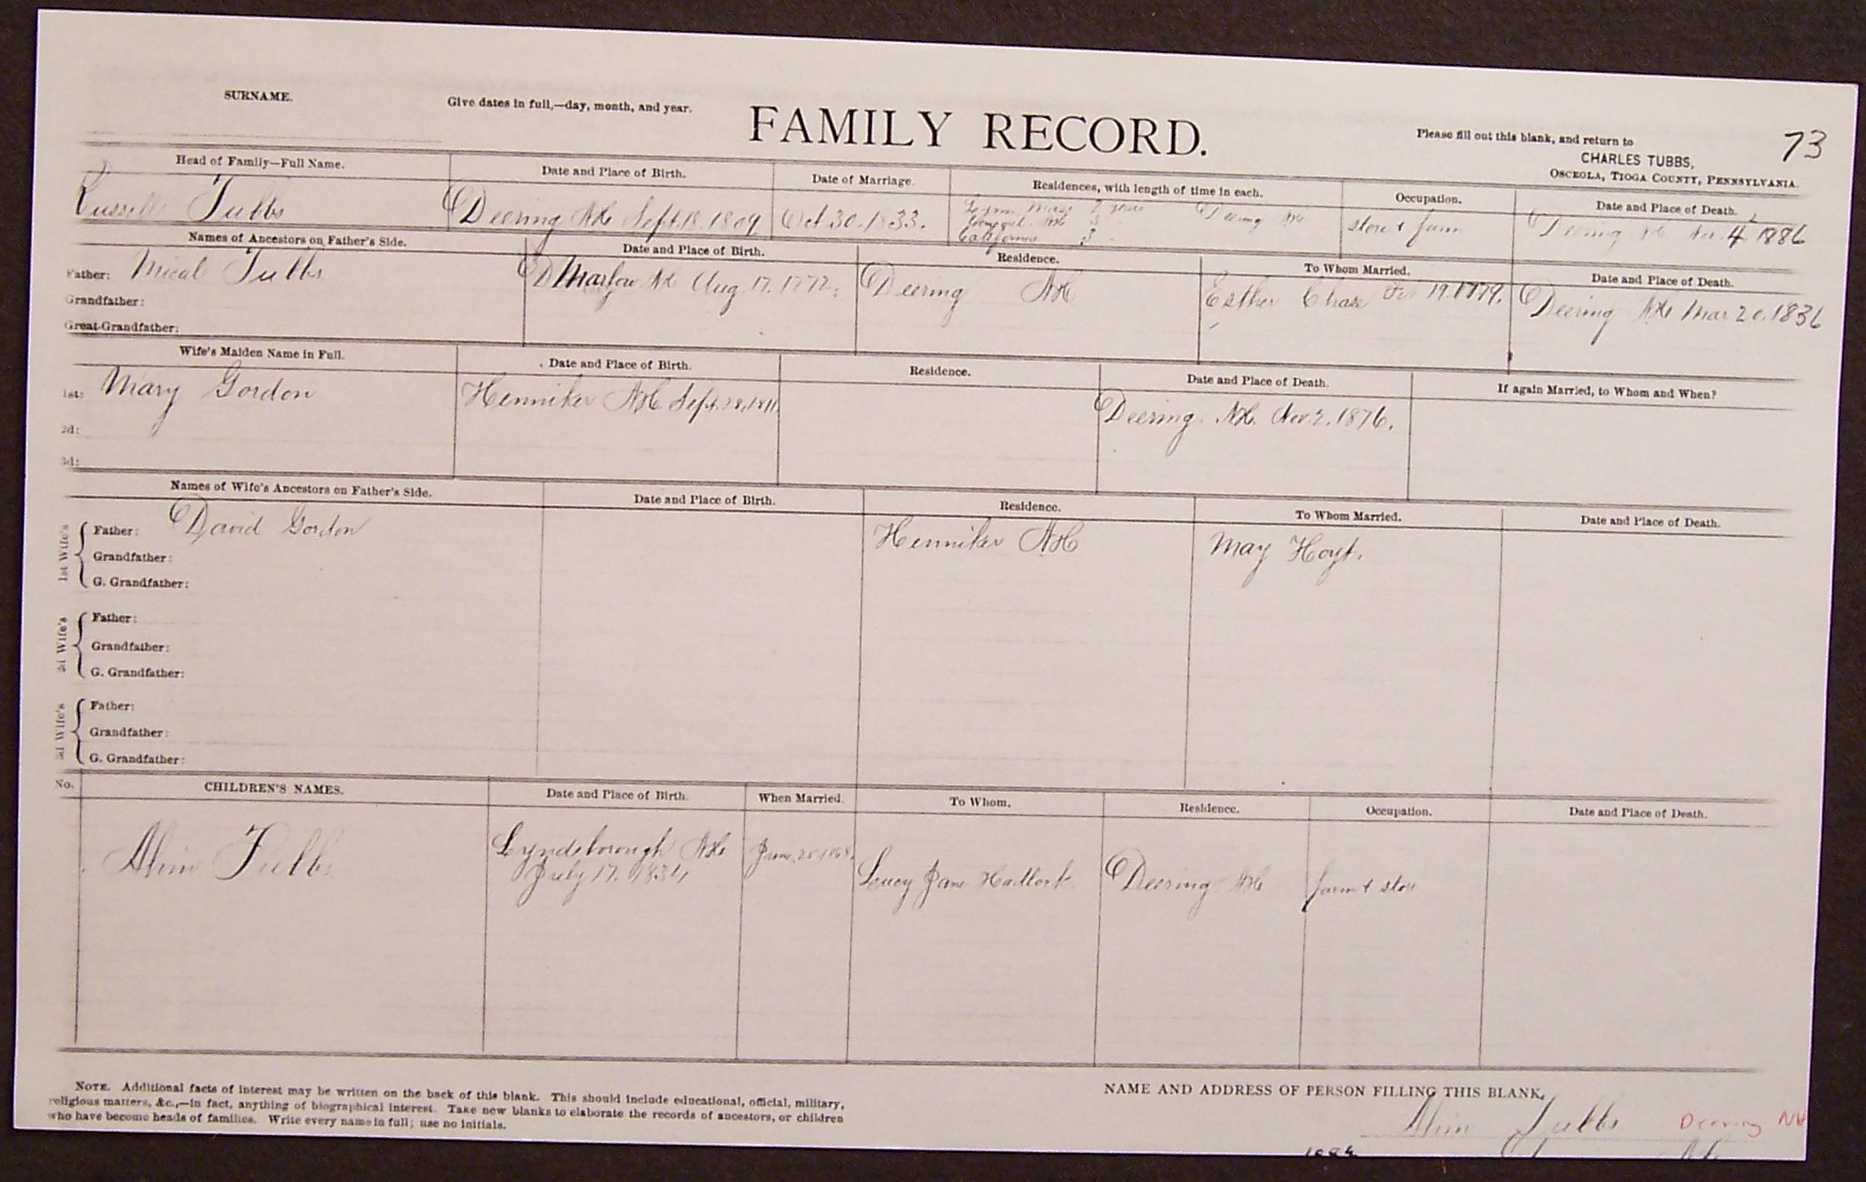 SURNAME.
Give dates in full,—day, month, and year.
FAMILY RECORD.
Please fill out this blank, and return to
CHARLES TUBBS,
OSCEOLA, TIOGA COUNTY, PENNSYLVANIA.
73
Head of Family—Full Name. Date and Place of Birth. Date of Marriage. Residences, with length of time in each. Occupation. Date and Place of Death.
Russell Tubbs Deering NH Sept. 18. 1809 Oct. 30. 1833. Lynn Mass Deering NH store & farm Deering NH Nov. 4 1886
3
California 3
Names of Ancestors on Father's Side. Date and Place of Birth. Residence. To Whom Married. Date and Place of Death.
Father: Mical Tubbs Marlow NH Aug 17. 1772. Deering NH Esther Chase 19. 1799. Deering NH Mar 20. 1836
Grandfather:
Great-Grandfather:
Wife's Maiden Name in Full. Date and Place of Birth. Residence. Date and Place of Death. If again Married, to Whom and When?
1st: Mary Gordon Henniker NH Sept. 28, 1811. Deering. NH. Nov 2. 1876.
2d:
3d:
Names of Wife's Ancestors on Father's Side. Date and Place of Birth. Residence. To Whom Married. Date and Place of Death.
1st Wife's
Father: David Gordon Henniker NH May Hoyt.
Grandfather:
G. Grandfather:
2d Wife's
Father:
Grandfather:
G. Grandfather:
3d Wife's
Father:
Grandfather:
G. Grandfather:
No. CHILDREN'S NAMES. Date and Place of Birth. When Married. To Whom. Residence. Occupation. Date and Place of Death.
Alvin Tubbs Lyndeborough NH
July 17. 1834 Lucy Jane Hadlock Deering NH farm & store
NOTE. Additional facts of interest may be written on the back of this blank. This should include educational, official, military,
religious matters, &c.,—in fact, anything of biographical interest. Take new blanks to elaborate the records of ancestors, or children
who have become heads of families. Write every name in full; use no initials.
NAME AND ADDRESS OF PERSON FILLING THIS BLANK.
Alvin Tubbs Deering NH